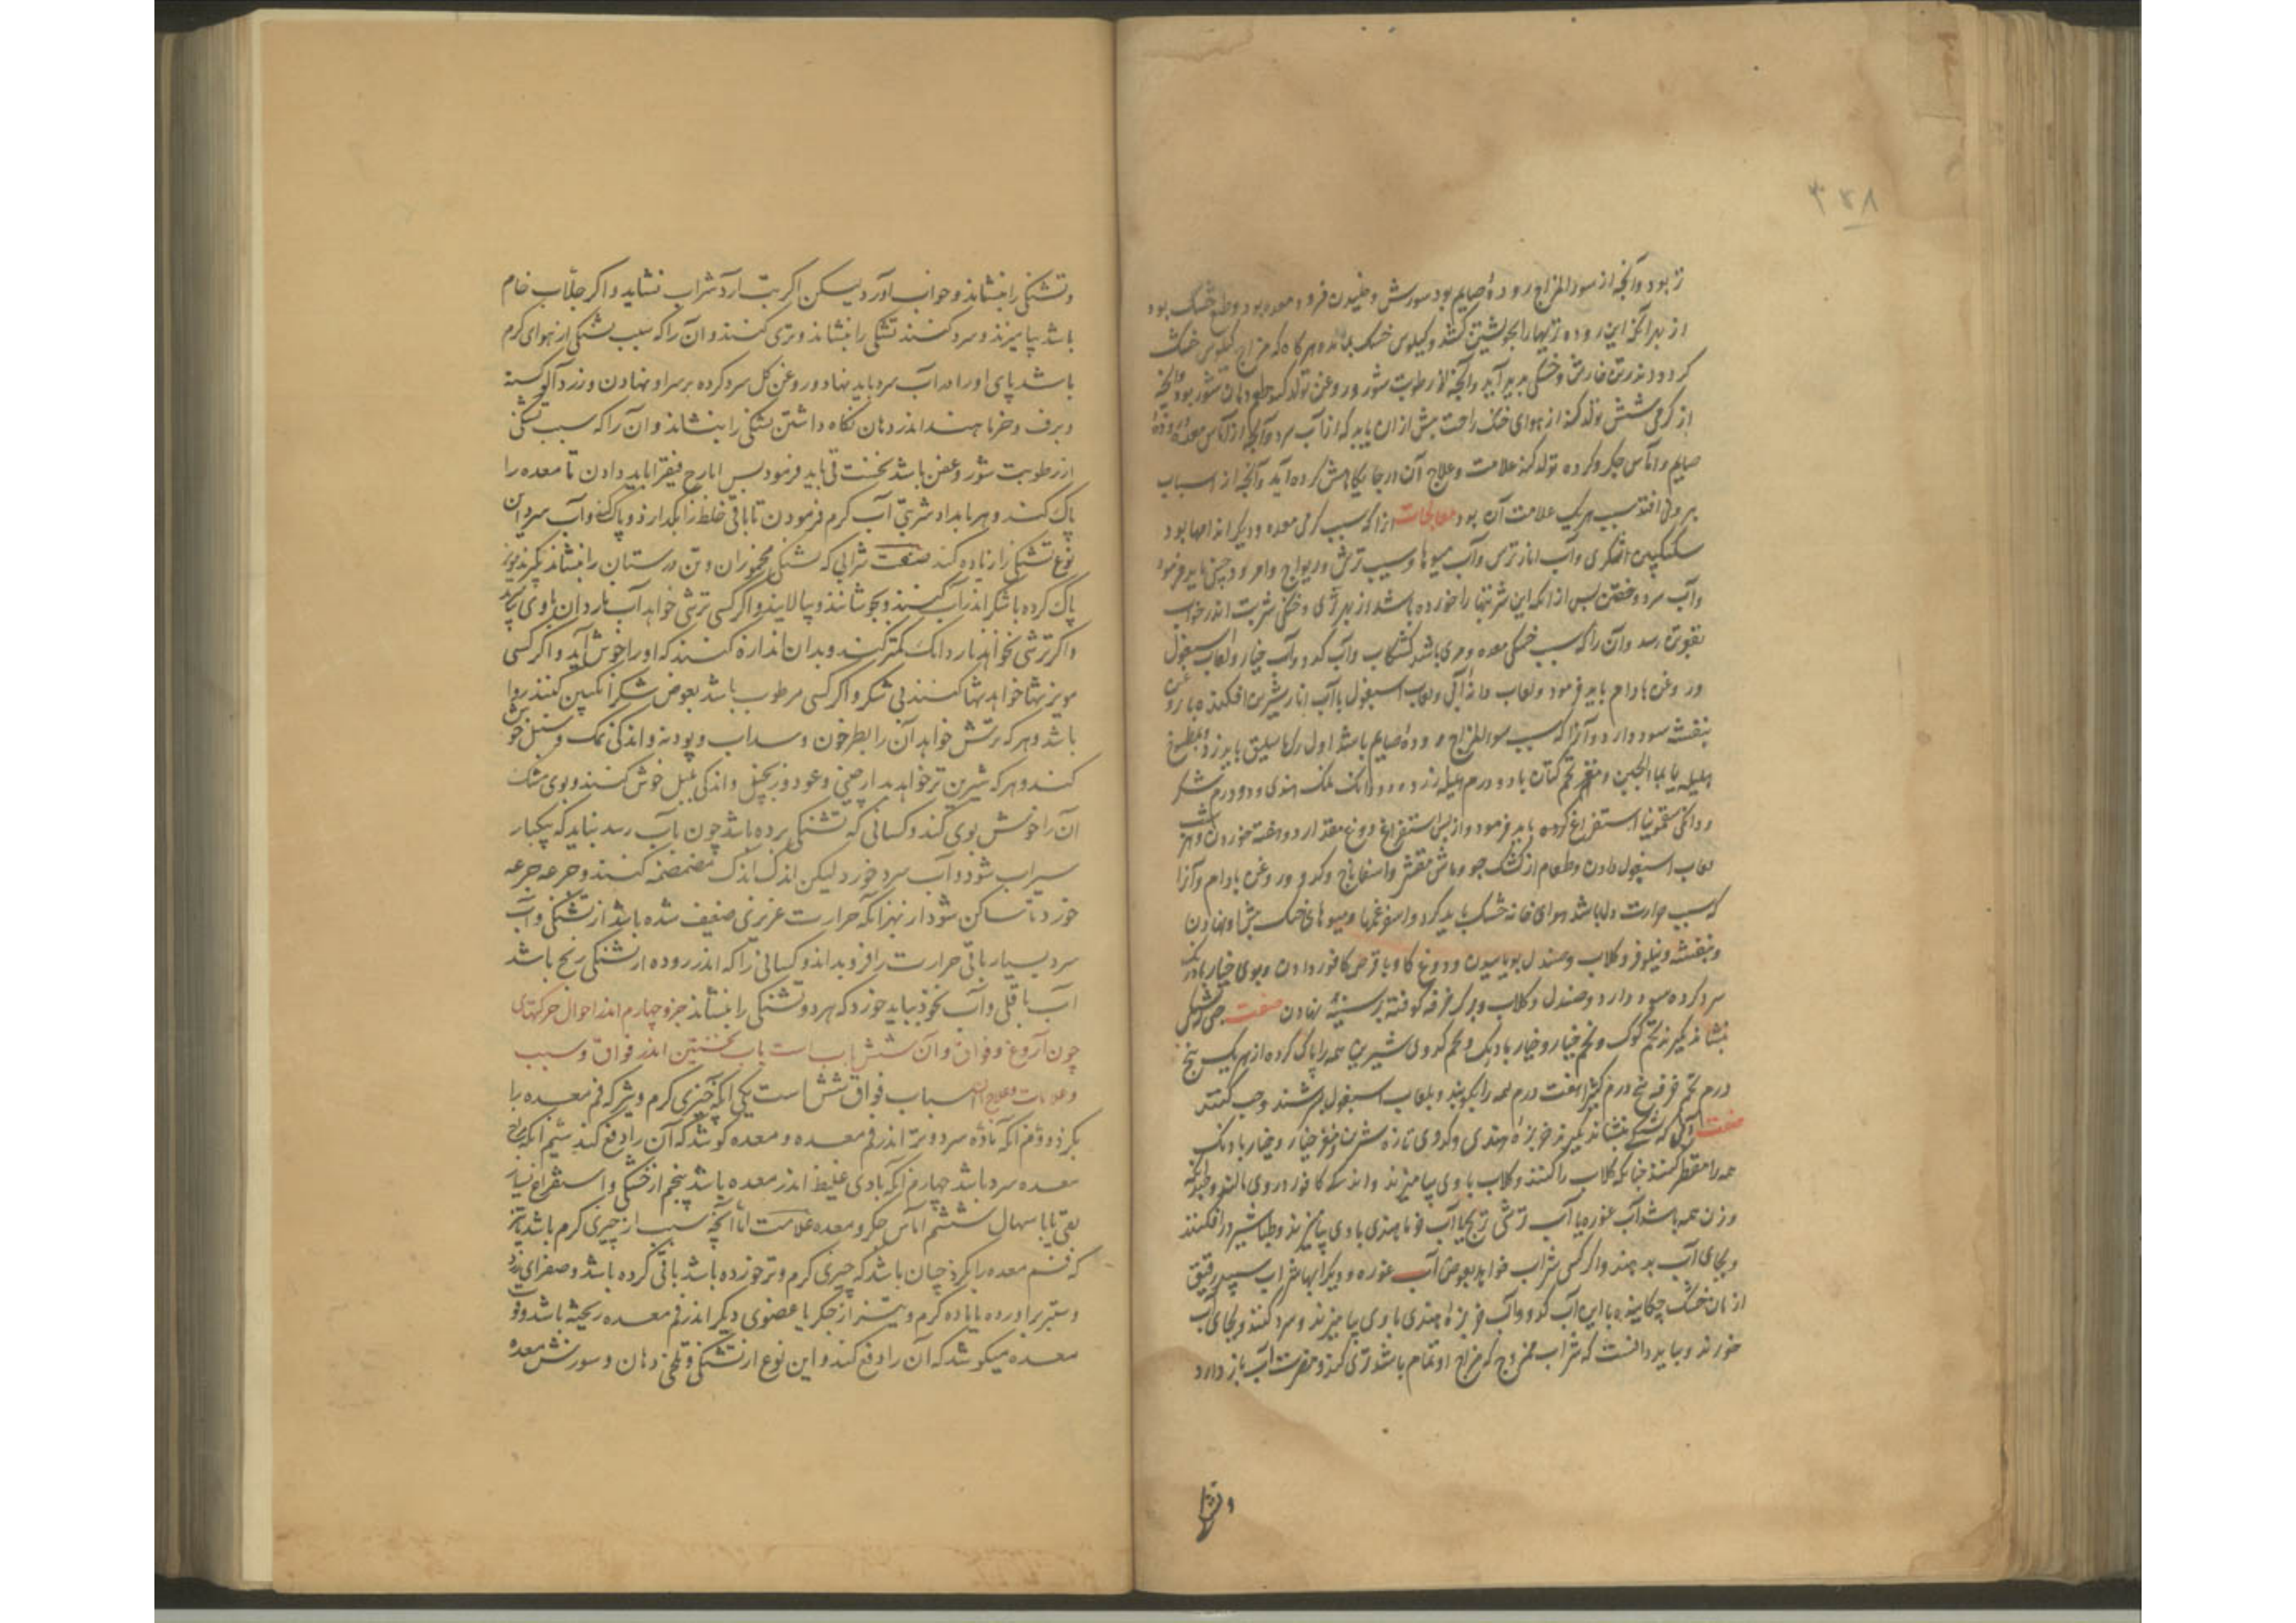 ۳۵۸
تر بود و آنچه از سوء المزاج رودهٔ صایم بود سوزش و خلیدن فرود معده بود و طبع خشک بود
از بهر آنکه این روده تریها را بخویشتن کشد و کیلوس خشک بماند و هرگاه که مزاج کیلوس خشک
کردد اندر تن خارش و خشکی پدید آید و آنچه از رطوبت شور و عفن تولد کند طعم دهان شور بود و آنچه
از کرمی شش تولد کند از هوای خنک راحت بیش از ان یابد که از آب سرد و آنچه از آماس معده و رودهٔ
صایم و آماس جکر و کرده تولد کند علامت و علاج آن در جایکاهش کرده آید و آنچه از اسباب
بیرونی افتد سبب هریک علامت آن بود معالجات انرا که سبب کرمی معده و دیکر اندامها بود
سکنکبین شکری و آب انار ترش و آب میوها و سیب ترش و ریواج و امرود چینی باید فرمود
و آب سرد و خفتن پس از انکه این شربتها را خورده باشد از بهر تری و خنکی شربت اندر خواب
بقوت رسد و آن را که سبب خشکی معده و مری باشد کشکاب و آب کدو و آب خیار و لعاب اسبغول
و روغن بادام باید فرمود و لعاب دانهٔ آبی و لعاب اسبغول با آب انار شیرین افکنده با روغن
بنفشه سود دارد و آنرا که سبب سوء المزاج رودهٔ صایم باشد اول رک باسلیق باید زد و بمطبوخ
هلیله یا بماء الجبن و مغز تخم کتان با دو درم هلیله زرد و دو دانک نمک هندی و دو درم شکر
و دانکی سقمونیا استفراغ کرده باید فرمود و از پس استفراغ دوغ مقدار دو هفته خوردن و هر شب
لعاب اسبغول دادن و طعام از کشک جو و ماش مقشر و اسفاناج و کدو و روغن بادام و آنرا
که سبب حرارت دل باشد هوای خانه خنک باید کرد و اسپرغمها و میوهای خنک پیش او نهادن
و بنفشه و نیلوفر و کلاب و صندل بویاسیدن و دوغ کاو با قرص کافور دادن و بوی خیار بادرنک
سرد کرده سود دارد و صندل و کلاب و برک خرفه کوفته بر سینه نهادن صفت حبی که تشنکی
بنشاند بکیرند تخم کوک و تخم خیار و خیار بادرنک و تخم کدوی شیرین همه را پاک کرده از هریک پنج
درم تخم خرفه پنج درم کثیرا هفت درم همه را بکوبند و بلعاب اسبغول بسرشند و حب کنند
صفت آبی که تشنکی بنشاند بکیرند خربزهٔ هندی و کدوی تازه شیرین و مغز خیار و خیار بادرنک
همه را مقطر کنند چنانکه کلاب را کنند و کلاب با وی بیامیزند و اندکی کافور در وی بالند و چندانکه
وزن همه باشد آب غوره یا آب ترشی ترنج یا آب خرما هندی با وی بیامیزند و طباشیر در افکنند
و بجای آب بدهند و اکر کسی شراب خواهد بعوض آب غوره و دیکر آبها شراب سپید رقیق
از نان خشک چکانیده با این آب کدو و آب خربزهٔ هندی با وی بیامیزند و سرد کنند و بجای آب
خورند و بباید دانست که شراب ممزوج که مزاج او تمام باشد تری کند و مضرت آب باز دارد
و تشنکی را
و تشنکی را بنشاند و خواب آورد لیکن اکر تب آرد شراب نشاید و اکر جلاب خام
باشد بیامیزند و سرد کنند تشنکی را بنشاند و تری کند و آن را که سبب تشنکی از هوای کرم
باشد پای او را در آب سرد باید نهاد و روغن کل سرد کرده بر سر او نهادن و زردآلو کسنه
و برف و خرما هندی اندر دهان نکاه داشتن تشنکی را بنشاند و آن را که سبب تشنکی
از رطوبت شور و عفن باشد نخست قی باید فرمود پس ایارج فیقرا باید دادن تا معده را
پاک کند و هر بامداد شربتی آب کرم فرمودن تا باقی خلط را بکدازد و پاک کند و آب سرد این
نوع تشنکی را زیاده کند صفت شرابی که تشنکی مخموران و تن درستان را بنشاند بکیرند مویز
پاک کرده با شکر اندر آب کنند و بجوشانند و بپالایند و اکر کسی ترشی خواهد آب ناردان با وی یار کنند
و اکر ترشی نخواهد ناردانک کمتر کنند و بدان اندازه کنند که او را خوش آید و اکر کسی
مویز تنها خواهد تنها کنند بی شکر و اکر کسی مرطوب باشد بعوض شکر انکبین کنند روا
باشد و هرکه ترش خواهد آن را بطرخون و سداب و پودنه و اندکی نمک و سنبل خوش
کنند و هرکه شیرین تر خواهد بدارچینی و عود و زنجبیل و اندکی پلپل خوش کنند و بوی مشک
آن را خوش بوی کند و کسانی که تشنکی برده باشد چون بآب رسد نباید که یکبار
سیراب شود و آب سرد خورد لیکن اندک اندک مضمضه کنند و جرعه جرعه
خورد تا ساکن شود از بهر آنکه حرارت غریزی ضعیف شده باشد از تشنکی و آب
سرد بسیار باقی حرارت را فرو میراند و کسانی را که اندر روده از تشنکی رنج باشد
آب باقلی و آب نخود بباید خورد که هر دو تشنکی را بنشاند جزو چهارم اندر احوال حرکتهای
چون آروغ و فواق و آن شش باب است باب نخستین اندر فواق و سبب
و علامات و علاج آن اسباب فواق شش است یکی آنکه چیزی کرم و تیز که فم معده را
بکزد دوم آنکه ماده سرد و تر اندر فم معده و معده کوشد که آن را دفع کند سیم آنکه مزاج
معده سرد باشد چهارم آنکه بادی غلیظ اندر معده باشد پنجم از خشکی و استفراغ بسیار
بقی یا باسهال ششم آماس جکر و معده علامت اما آنچه سبب از چیزی کرم باشد و تیز
که فم معده را بکزد چنان باشد که چیزی کرم و تیز خورده باشد یا قی کرده باشد و صفرای زرد
و ستبر براورده یا ماده کرم و تیز از جکر یا عضوی دیکر اندر فم معده ریخته باشد و قوت
معده میکوشد که آن را دفع کند و این نوع از تشنکی و تلخی دهان و سوزش معده